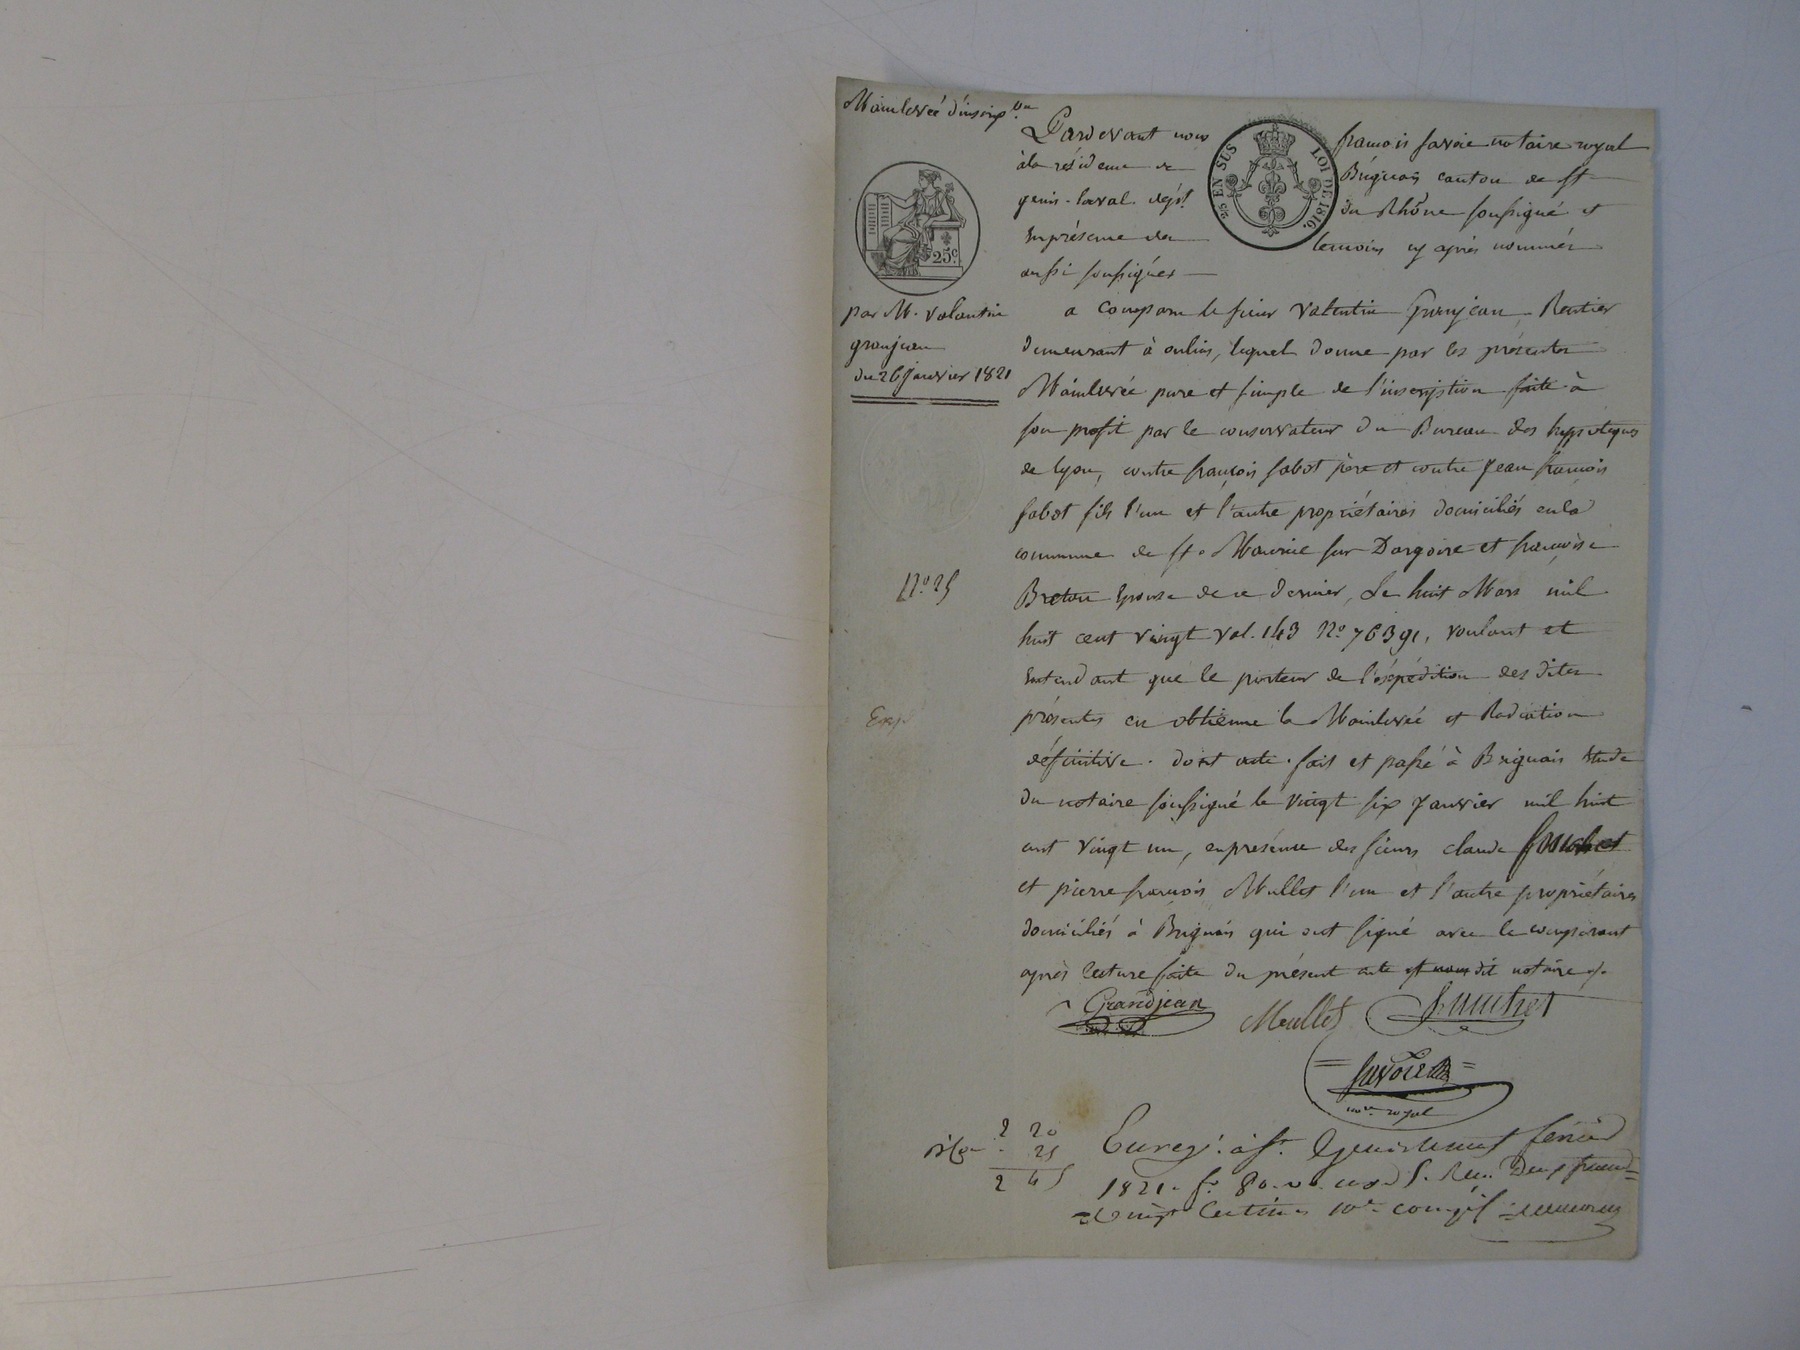 Mainlevée d'inscrip.on
Pardevant nous françois Savoie notaire royal
à la résidence de Brignais canton de St
genis-laval dépt. du Rhône soussigné et
En présence des temoins cy après nommés
aussi soussignés
25 EN SUS LOI DE 1816.
25c.
par M. valentin
granjean
du 26 Janvier 1821
a comparu le sieur Valentin Granjean, Rentier
demeurant à oulins, lequel donne par les présentes
Mainlevée pure et simple de l'inscription faite à
son profit par le conservateur du Bureau des hypotèques
de lyon, contre françois fabot père et contre Jean françois
fabot fils l'un et l'autre propriétaires domiciliés en la
commune de St. Maurice sur Dargoire et françoise
No. 25
Breton Epouse de ce dernier, Le huit Mars mil
huit cent vingt vol. 143 No. 76391, voulant et
Entendant que le porteur de l'éxpédition des dites
Exp.
présentes en obtienne la Mainlevée et Radiation
définitive. dont acte. fait et passé à Brignais Etude
du notaire soussigné le vingt six Janvier mil huit
cent vingt un, en présence des sieurs claude
et pierre françois Mullet l'un et l'autre propriétaires
domiciliés à Brignais qui ont signé avec le comparant
après lecture faite du présent acte et nous dit notaire
Grandjean Mullet
Savoie
nore. royal
2 20
25
2 45
Enregé. à St. Genis
1821. fo. 80. vo. Deux francs
vingt Centimes 10e compris